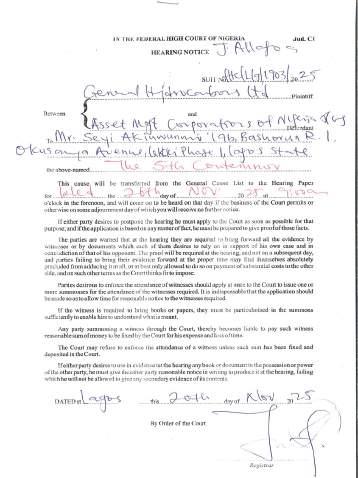 IN THE FEDERAL HIGH COURT OF NIGERIA Jud. C1
HEARING NOTICE
SUIT FHC/L/ 1903/2025
General Hydrocarbons Ltd
Plaintiff
Between
and
Asset Mgt Corporation of Nigeria & ors
Defendant
To Mr. Seyi Akinwunmi 196, Bashorun R. I.
Okusanya Avenue, Lekki Phase 1, Lagos State
the above-named The 5th Contemnor
This cause will be transferred from the General Cause List to the Hearing Paper
for Wed the 26th day of Nov 2025 at 9:00am
o'clock in the forenoon, and will come to be heard on that day if the business of the Court permits or
otherwise on some adjournment day of which you will receive no further notice.
If either party desires to postpone the hearing he must apply to the Court as soon as possible for that
purpose; and if the application is based on any matter of fact, he must be prepared to give proof of those facts.
The parties are warned that at the hearing they are required to bring forward all the evidence by
witnesses or by documents which each of them desires to rely on in support of his own case and in
contradiction of that of his opponent. The proof will be required at the hearing, and not on a subsequent day,
and parties failing to bring their evidence forward at the proper time may find themselves absolutely
precluded from adducing it at all, or at best only allowed to do so on payment of substantial costs to the other
side, and on such other terms as the Court thinks fit to impose.
Parties desirous to enforce the attendance of witnesses should apply at once to the Court to issue one or
more summonses for the attendance of the witnesses required. It is indispensable that the application should
be made so as to allow time for reasonable notice to the witnesses required.
If the witness is required to bring books or papers, they must be particularised in the summons
sufficiently to enable him to understand what is meant.
Any party summoning a witness through the Court, thereby becomes liable to pay such witness
reasonable sum of money to be fixed by the Court for his expense and loss of time.
The Court may refuse to enforce the attendance of a witness unless such sum has been fixed and
deposited in the Court.
If either party desires to use in evidence at the hearing any book or document in the possession or power
of the other party, he must give the other party reasonable notice in writing to produce it at the hearing, failing
which he will not be allowed to give any secondary evidence of its contents.
DATED at Lagos this 20th day of Nov 2025
By Order of the Court
Registrar